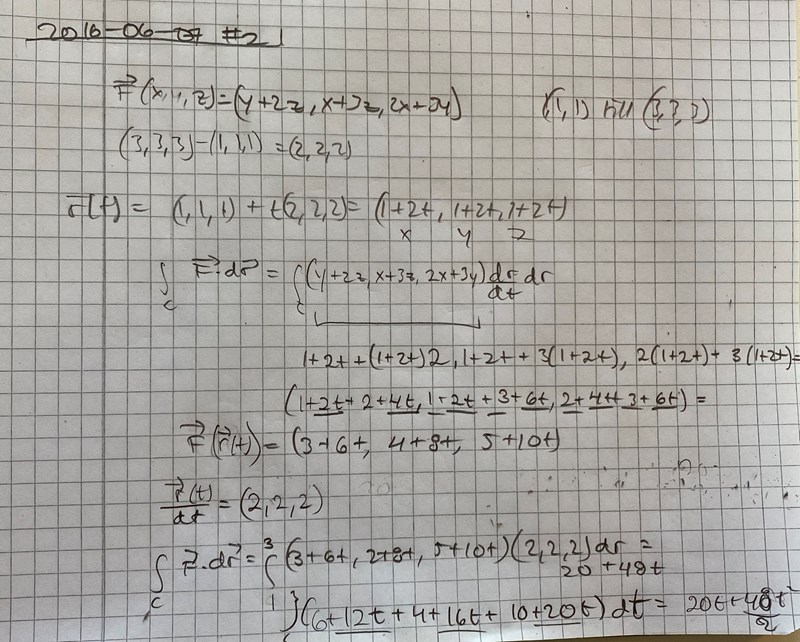 2016-06-07 #2
F(x,y,z)=(y+2z, x+3z, 2x+3y) (1,1,1) till (3,3,3)
(3,3,3)-(1,1,1) = (2,2,2)
r(t) = (1,1,1) + t(2,2,2) = (1+2t, 1+2t, 1+2t)
x y z
∫ F·dr = ∫ (y+2z, x+3z, 2x+3y) dr/dt dr
c c
1+2t+(1+2t)2, 1+2t+3(1+2t), 2(1+2t)+3(1+2t)=
(1+2t+2+4t, 1+2t+3+6t, 2+4t+3+6t) =
F(r(t)) = (3+6t, 4+8t, 5+10t)
r(t)/dt = (2,2,2)
∫ F·dr = ∫ (3+6t, 2+8t, 5+10t)(2,2,2) dr =
c 1 3
20+48t
∫(6+12t+4+16t+10+20t) dt = 20t+48t²/2